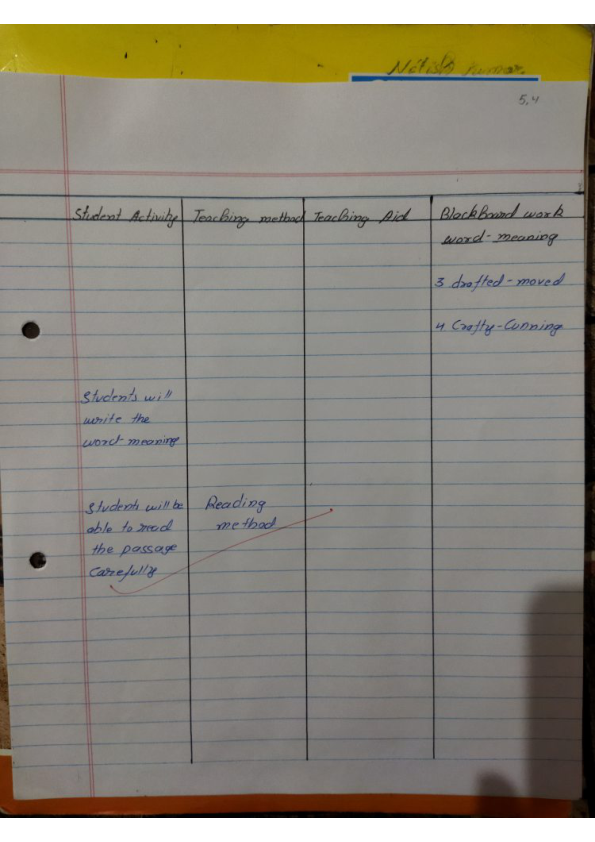 Nitish Kumar.
5.4
Student Activity
Teaching method
Teaching Aid
Blackboard work
word-meaning
3 drafted-moved
4 Crafty-Cunning
Students will
write the
word-meaning
Students will be
able to read
the passage
Carefully
Reading
method